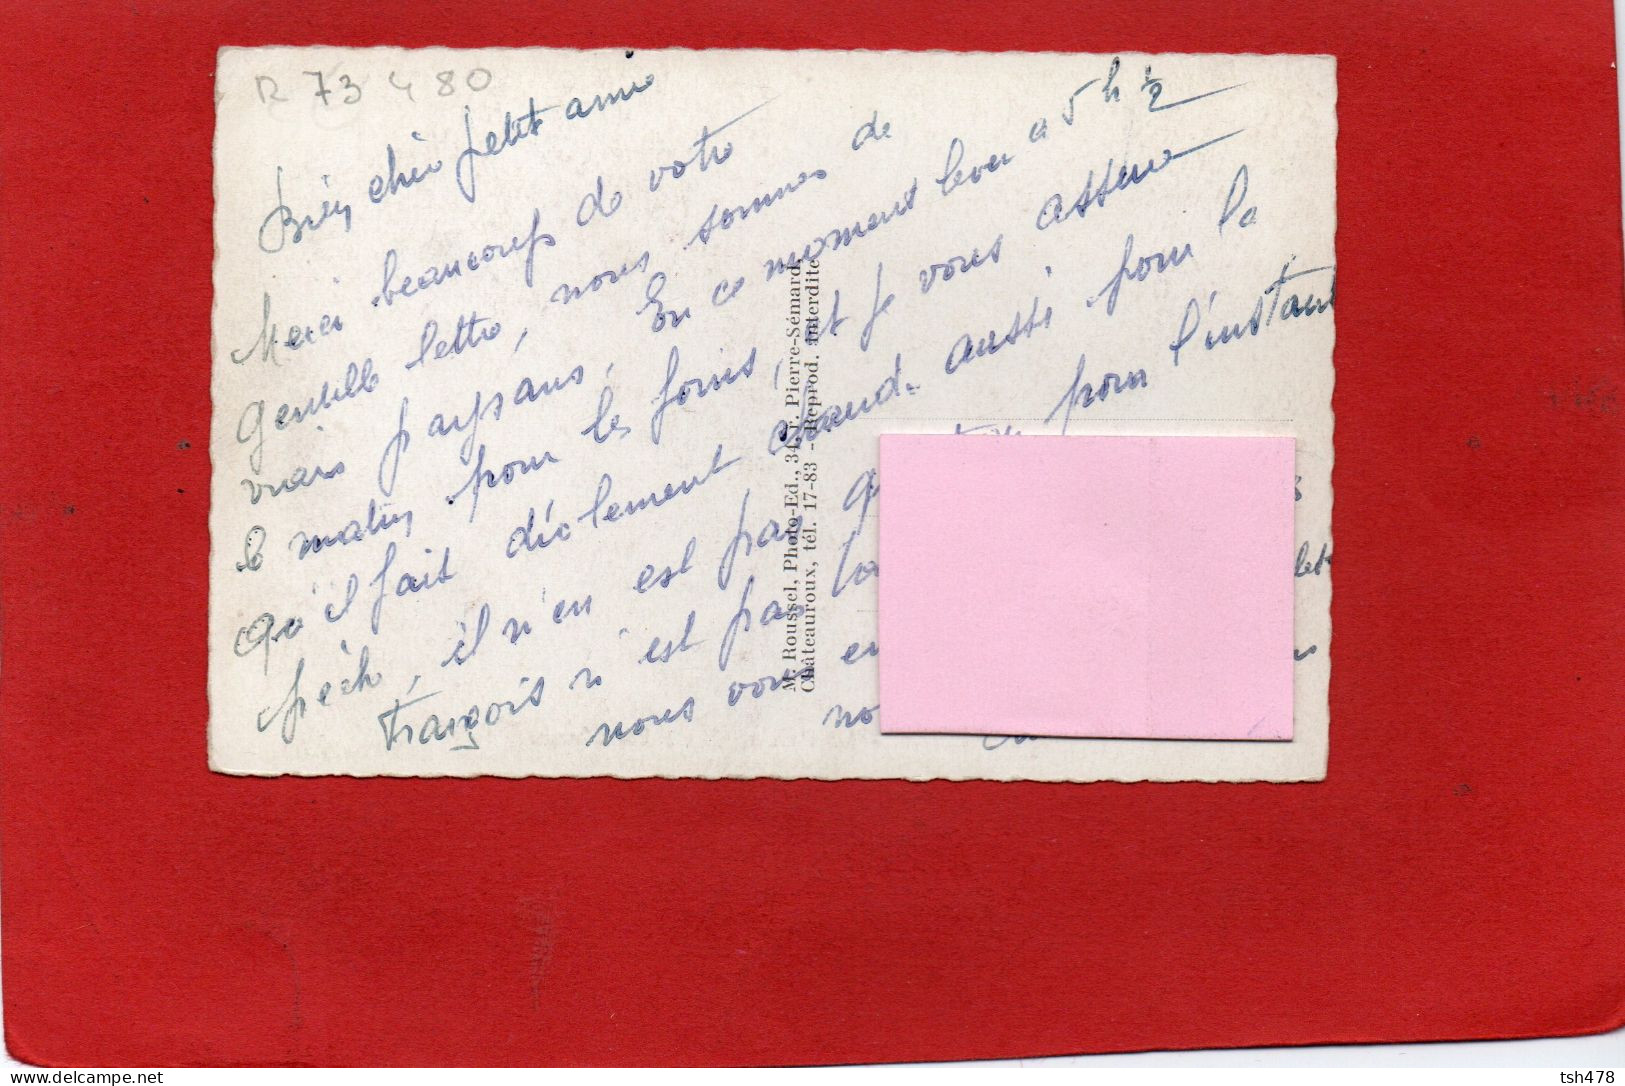 R 73 4 80
Bien chère petite amie
Merci beaucoup de votre
gentille lettre, nous sommes de
vrais paysans, En ce moment lever à 5h½
le matin pour les foins, et je vous assure
qu'il fait drôlement chaud. aussi pour la
pèche, il n'en est pas question pour l'instant
François n'est pas
nous vous
M. Roussel, Photo-Ed., 34, r. Pierre-Sémard,
Châteauroux, tél. 17-83 - Reprod. interdite
tsh478